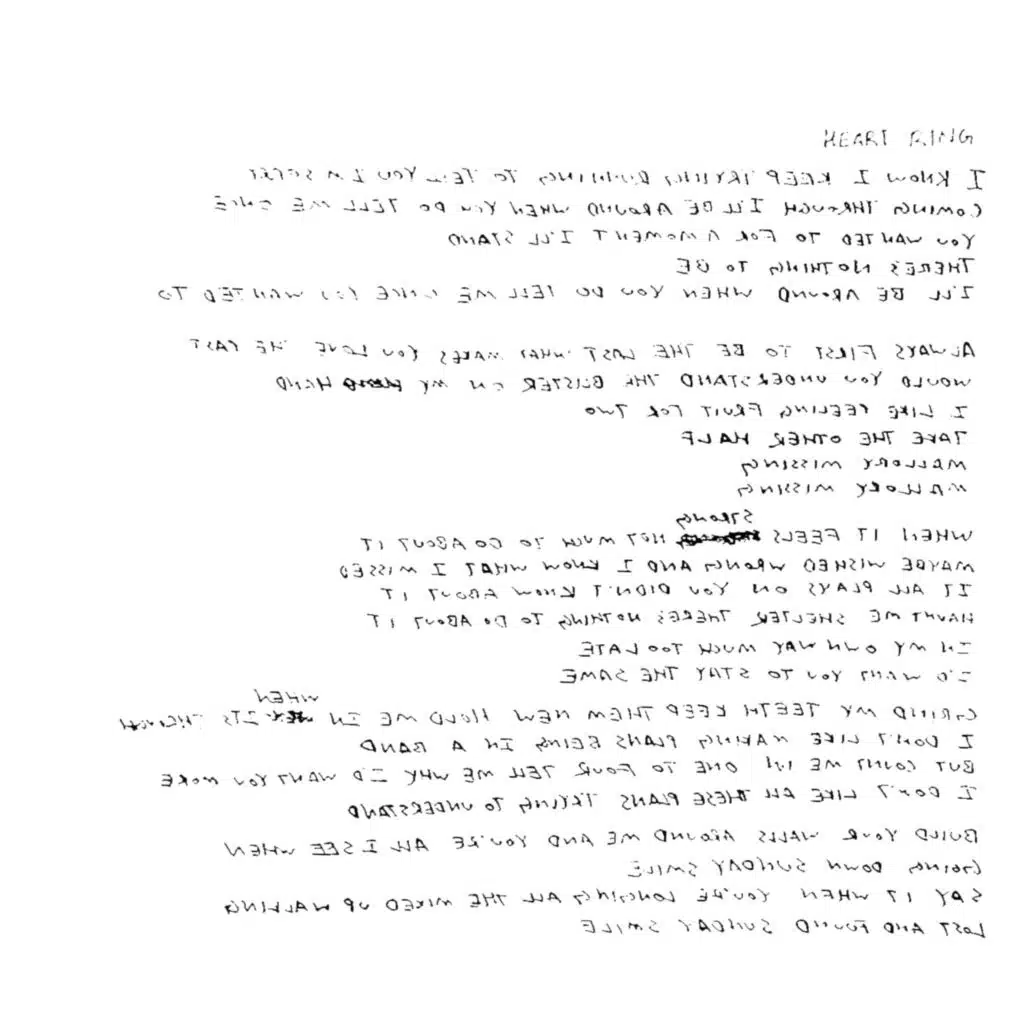 HEART RING
I KNOW I KEEP TRYING RUNNING TO TELL YOU I'M
COMING THROUGH I'LL BE AROUND WHEN YOU DO TELL ME ONCE
YOU WANTED TO FOR A MOMENT I'LL STAND
THERE'S NOTHING TO BE
I'LL BE AROUND WHEN YOU DO TELL ME ONCE YOU WANTED TO
ALWAYS FIRST TO BE THE LAST WHAT MAKES YOU LOVE THE PAST
WOULD YOU UNDERSTAND THE BLISTER ON MY HAND
I LIKE PEELING FRUIT FOR TWO
TAKE THE OTHER HALF
MALLORY MISSING
MALLORY MISSING
WHEN IT FEELS STRONG NOT MUCH TO GO ABOUT IT
MAYBE WISHED WRONG AND I KNOW WHAT I MISSED
IT ALL PLAYS ON YOU DIDN'T KNOW ABOUT IT
HAUNT ME SHELTER THERE'S NOTHING TO DO ABOUT IT
IN MY OWN WAY MUCH TOO LATE
I'D WANT YOU TO STAY THE SAME
GRIND MY TEETH KEEP THEM NEW HOLD ME IN WHEN ITS THROUGH
I DON'T LIKE MAKING PLANS BEING IN A BAND
BUT COUNT ME IN ONE TO FOUR TELL ME WHY I'D WANT YOU MORE
I DON'T LIKE ALL THESE PLANS TRYING TO UNDERSTAND
BUILD YOUR WALLS AROUND ME AND YOU'RE ALL I SEE WHEN
GOING DOWN SUNDAY SMILE
SAY IT WHEN YOU'RE LONGING ALL THE MIXED UP WALKING
LOST AND FOUND SUNDAY SMILE